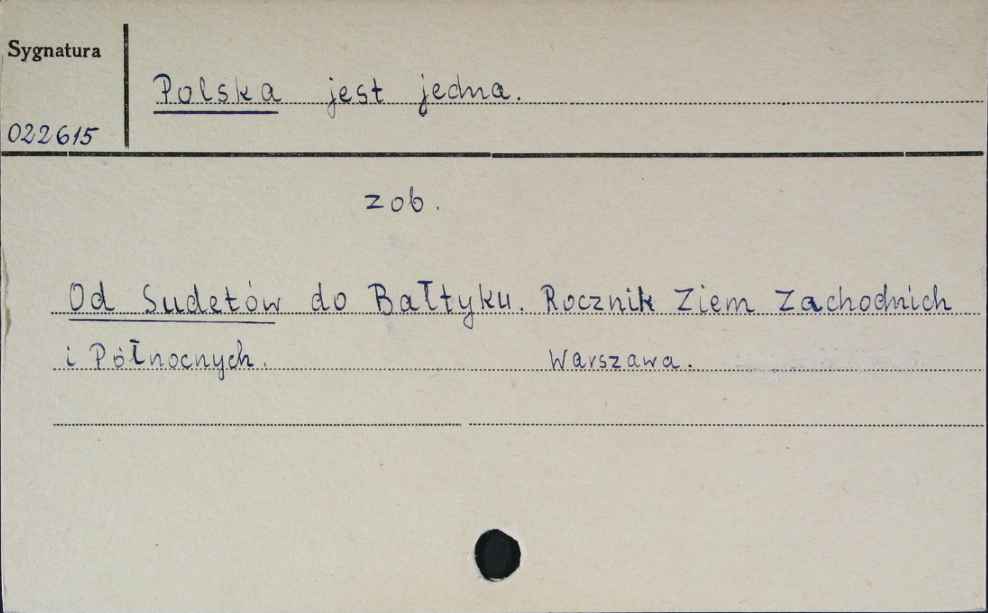 Sygnatura
Polska jest jedna.
022615
zob.
Od Sudetów do Bałtyku. Rocznik Ziem Zachodnich
i Północnych. Warszawa.